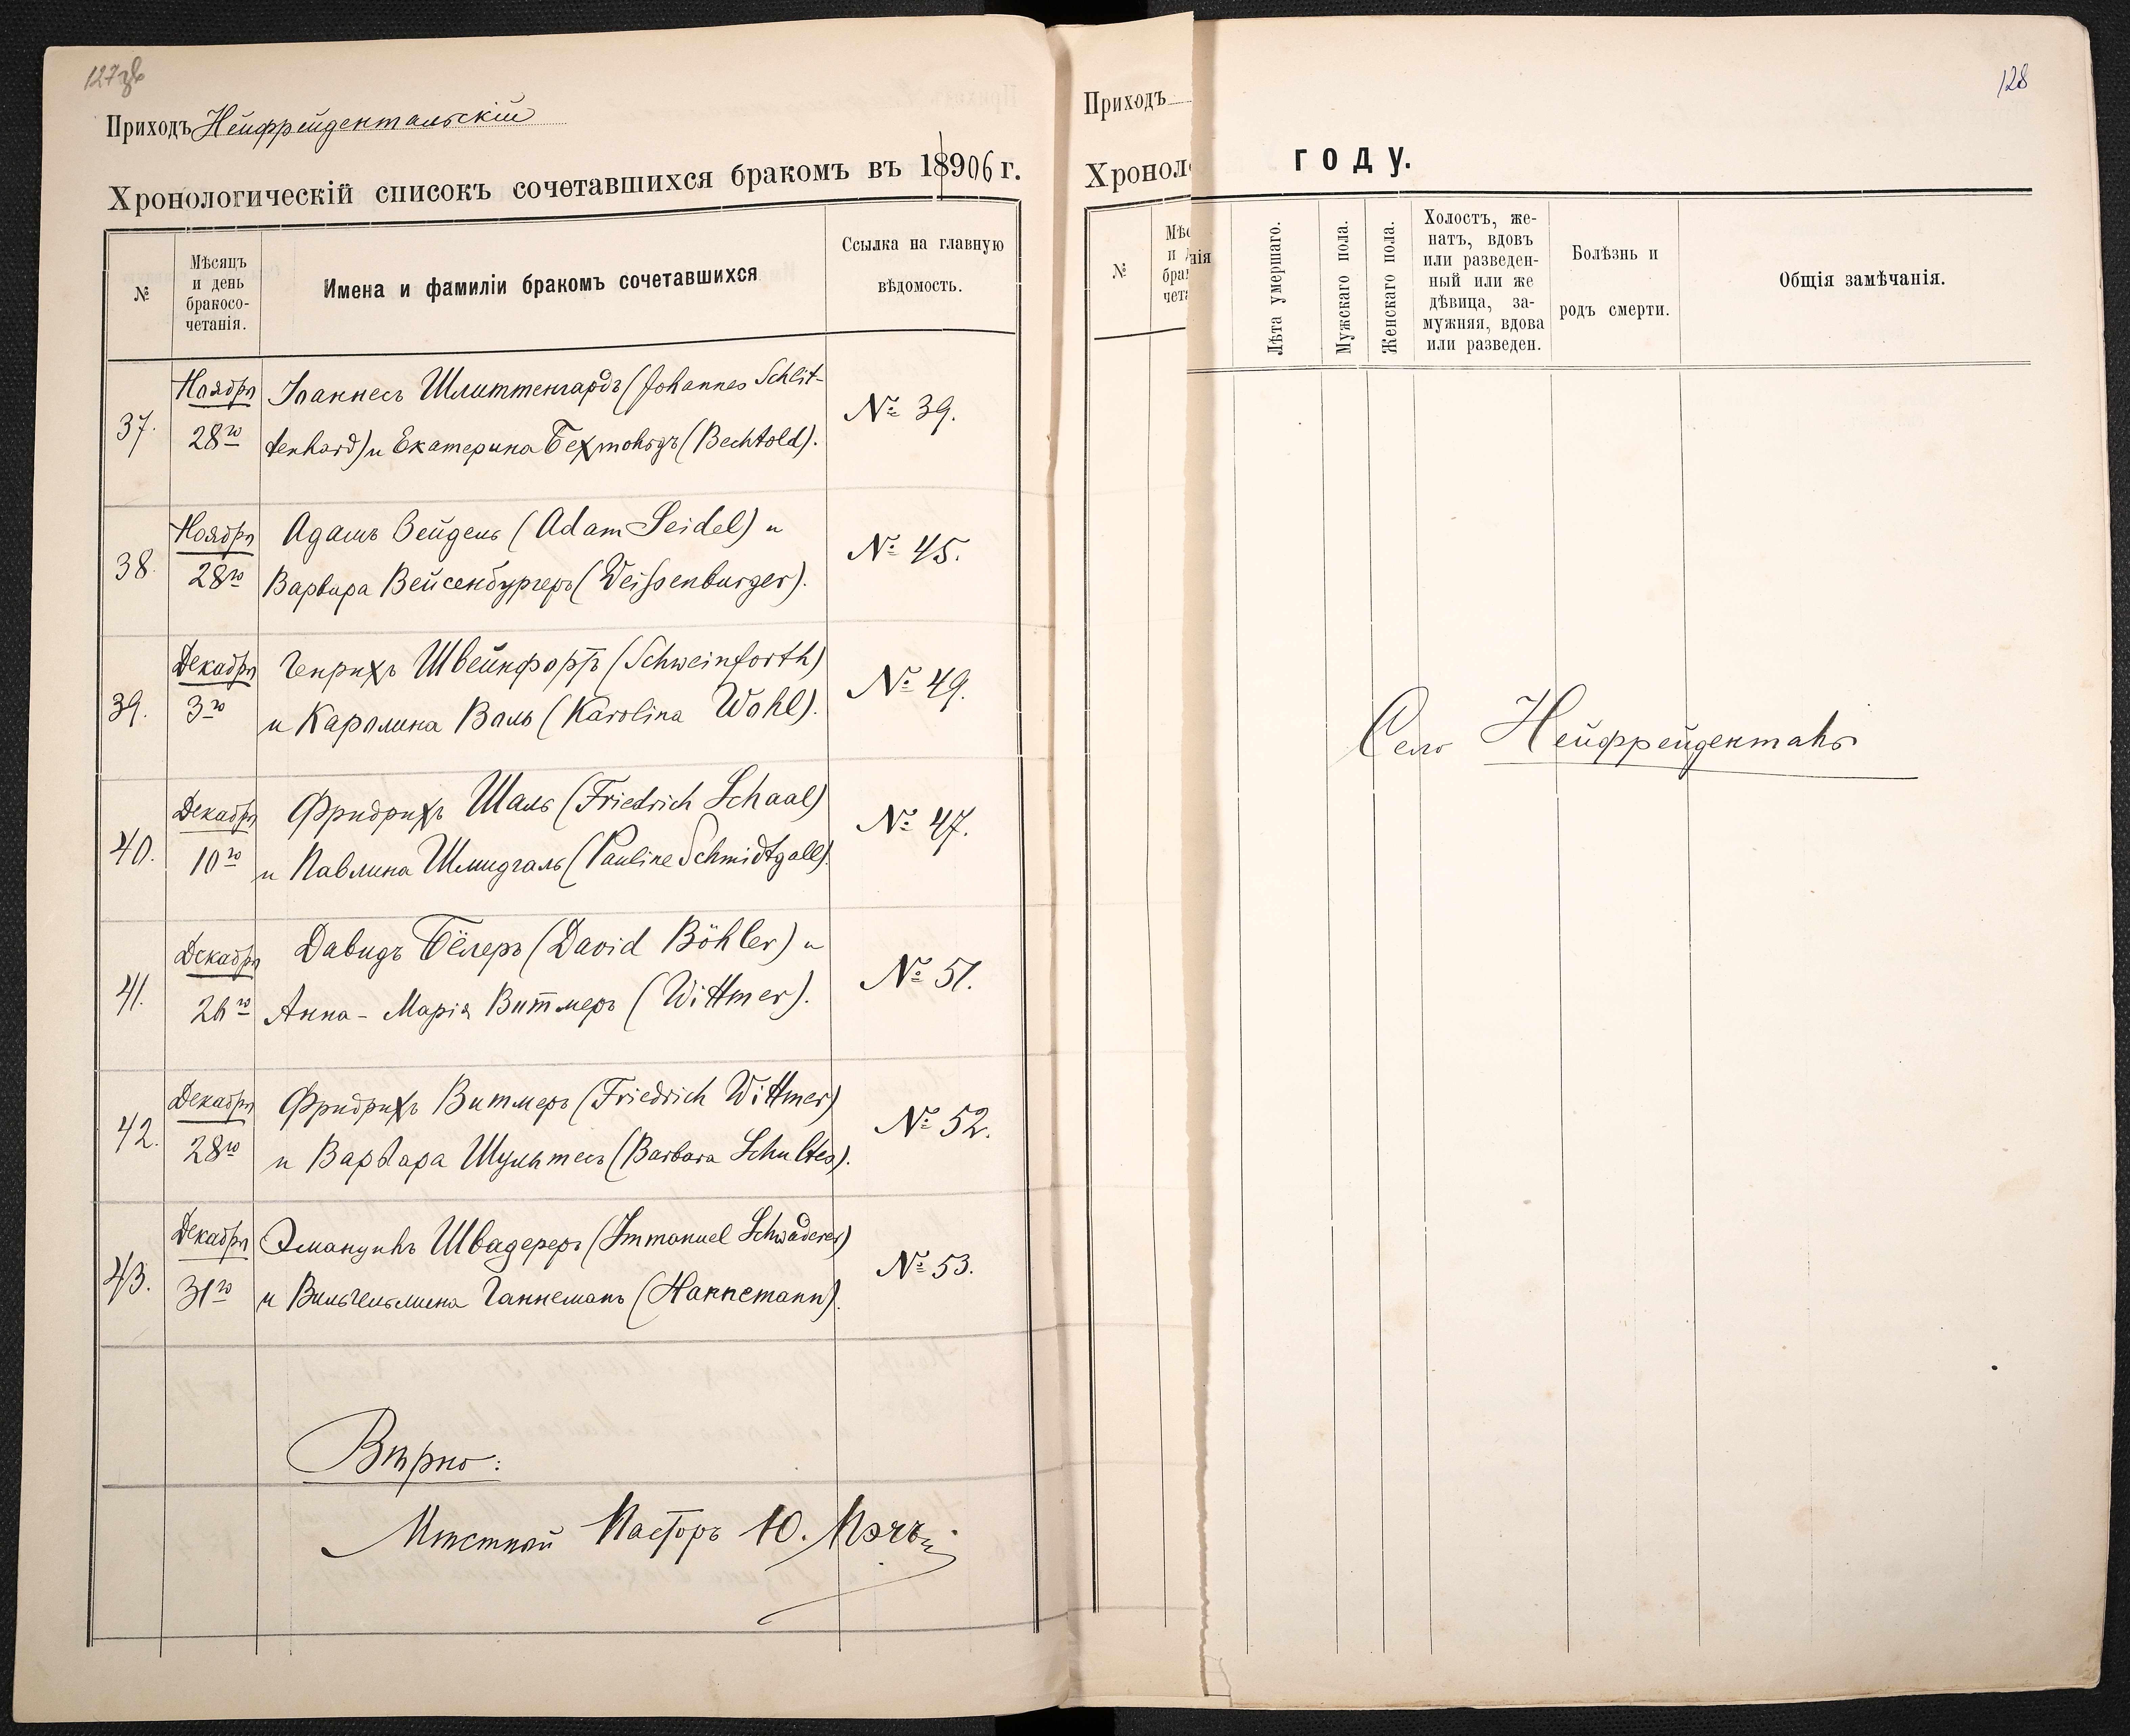 127 зв
Приходъ Нейфрейдентальскій
Хронологическій списокъ сочетавшихся бракомъ въ 18906 г.
№
Мѣсяцъ
и день
бракосо-
четанія.
Имена и фамиліи бракомъ сочетавшихся
Ссылка на главную
вѣдомость.
37.
Ноября
28го
Іоаннесъ Шлиттенгардъ (Johannes Schlit-
tenhard) и Екатерина Бехтольдъ (Bechtold).
№ 39.
38.
Ноября
28го
Адамъ Зейдель (Adam Seidel) и
Варвара Вейсенбургеръ (Weissenburger).
№ 45.
39.
Декабря
3го
Генрихъ Швейнфортъ (Schweinforth)
и Каролина Воль (Karolina Wohl).
№ 49.
40.
Декабря
10го
Фридрихъ Шаль (Friedrich Schaal)
и Павлина Шмидгаль (Pauline Schmidtgall).
№ 47.
41.
Декабря
26го
Давидъ Бёлеръ (David Böhler) и
Анна-Марія Виттмеръ (Wittmer).
№ 51.
42.
Декабря
28го
Фридрихъ Витмеръ (Friedrich Wittmer)
и Варвара Шультесъ (Barbara Schultes).
№ 52.
43.
Декабря
31го
Эмануилъ Швадереръ (Immanuel Schwaderer)
и Вильгельмина Ганнеманъ (Hannemann).
№ 53.
Вѣрно:
Мѣстный Пасторъ Ю.
Приходъ
Хроноло
№
Мѣс
и д
бра
чет
128
году.
нія
Лѣта умершаго.
Мужскаго пола.
Женскаго пола.
Холостъ, же-
натъ, вдовъ
или разведен-
ный или же
дѣвица, за-
мужняя, вдова
или разведен.
Болѣзнь и
родъ смерти.
Общія замѣчанія.
Село Нейфрейденталь